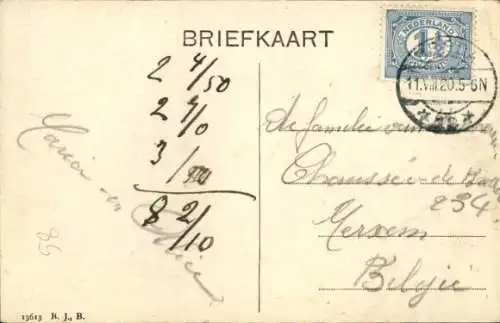 BRIEFKAART
NEDERLAND
11.VIII.20.5-6N
2 4/50
2 4/0
3 /
8 2/10
Marion en
Alice
86
de familie van
Chaussée de
234
Merxem
België
13613 R. J., B.